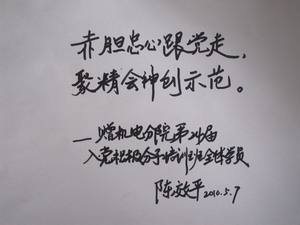 赤胆忠心跟党走，
聚精会神创示范。
——赠机电分院第24届
入党积极分子培训班全体学员
陈效平 2010.5.7